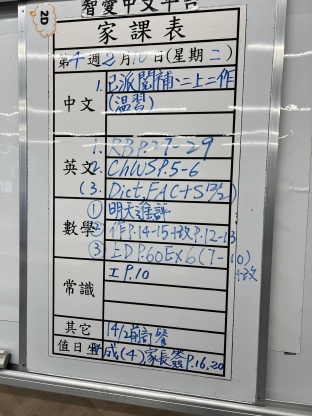 智愛中文平台
2D
家課表
第4週2月10日(星期二)
中文
1. 已派閱補、二上二作
(溫習)
英文
1. RB P.27-29
2. ChWS P.5-6
(3. Dict, FAC+S 12/2)
數學
① 明天進評
② 作P.14-15+改P.12-13
③ 工D P.60 Ex6(7-10)
+改
常識
工P.10
其它
14/2前訂餐
值日生
成(4)家長簽P.16,20